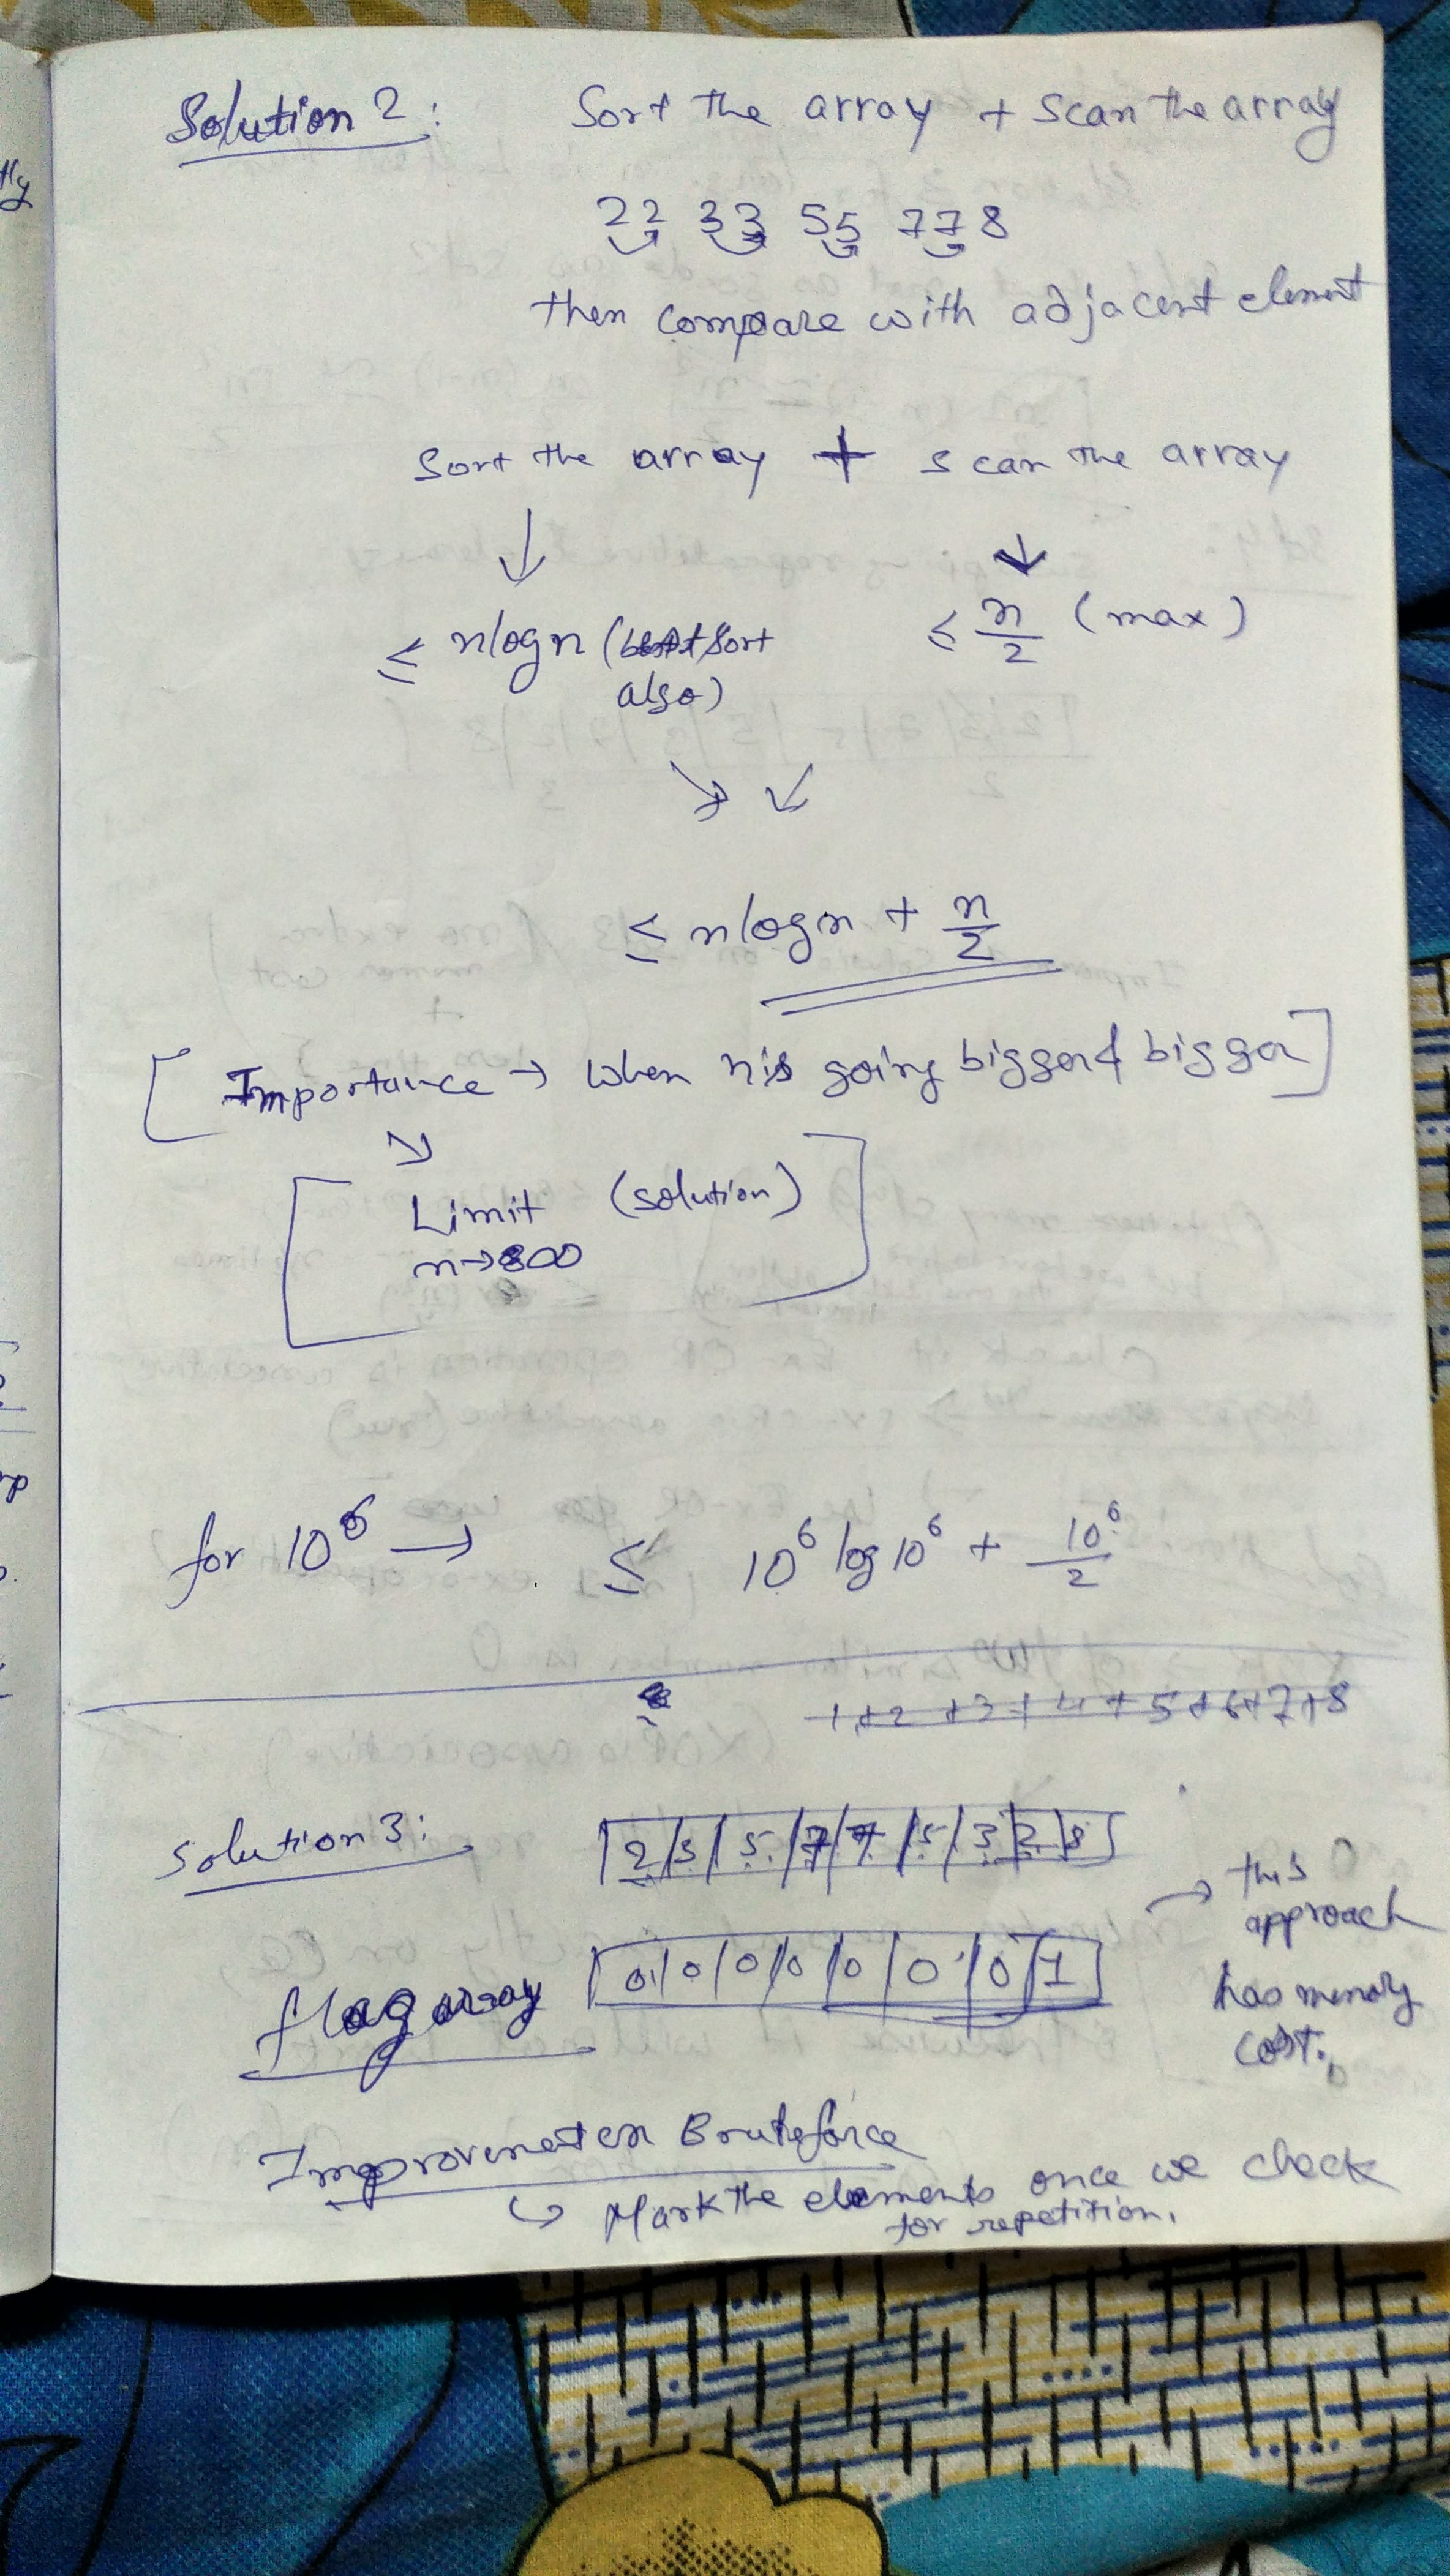 Solution 2: Sort the array + Scan the array
22 33 55 77 8
then compare with adjacent element
Sort the array + scan the array
≤ nlogn (best sort also) ≤ n/2 (max)
≤ nlogn + n/2
[Importance → when n is going bigger & bigger]
[Limit (solution)]
n→∞
for 10^6 → ≤ 10^6 log 10^6 + 10^6/2
1+2+3+4+5+6+7+8
Solution 3: 2 3 5 7 7 5 3 2 8
→ this
approach
flag array 0 0 0 0 0 0 0 1
has memory
cost.
Improvement on Bruteforce
↳ Mark the elements once we check
for repetition.